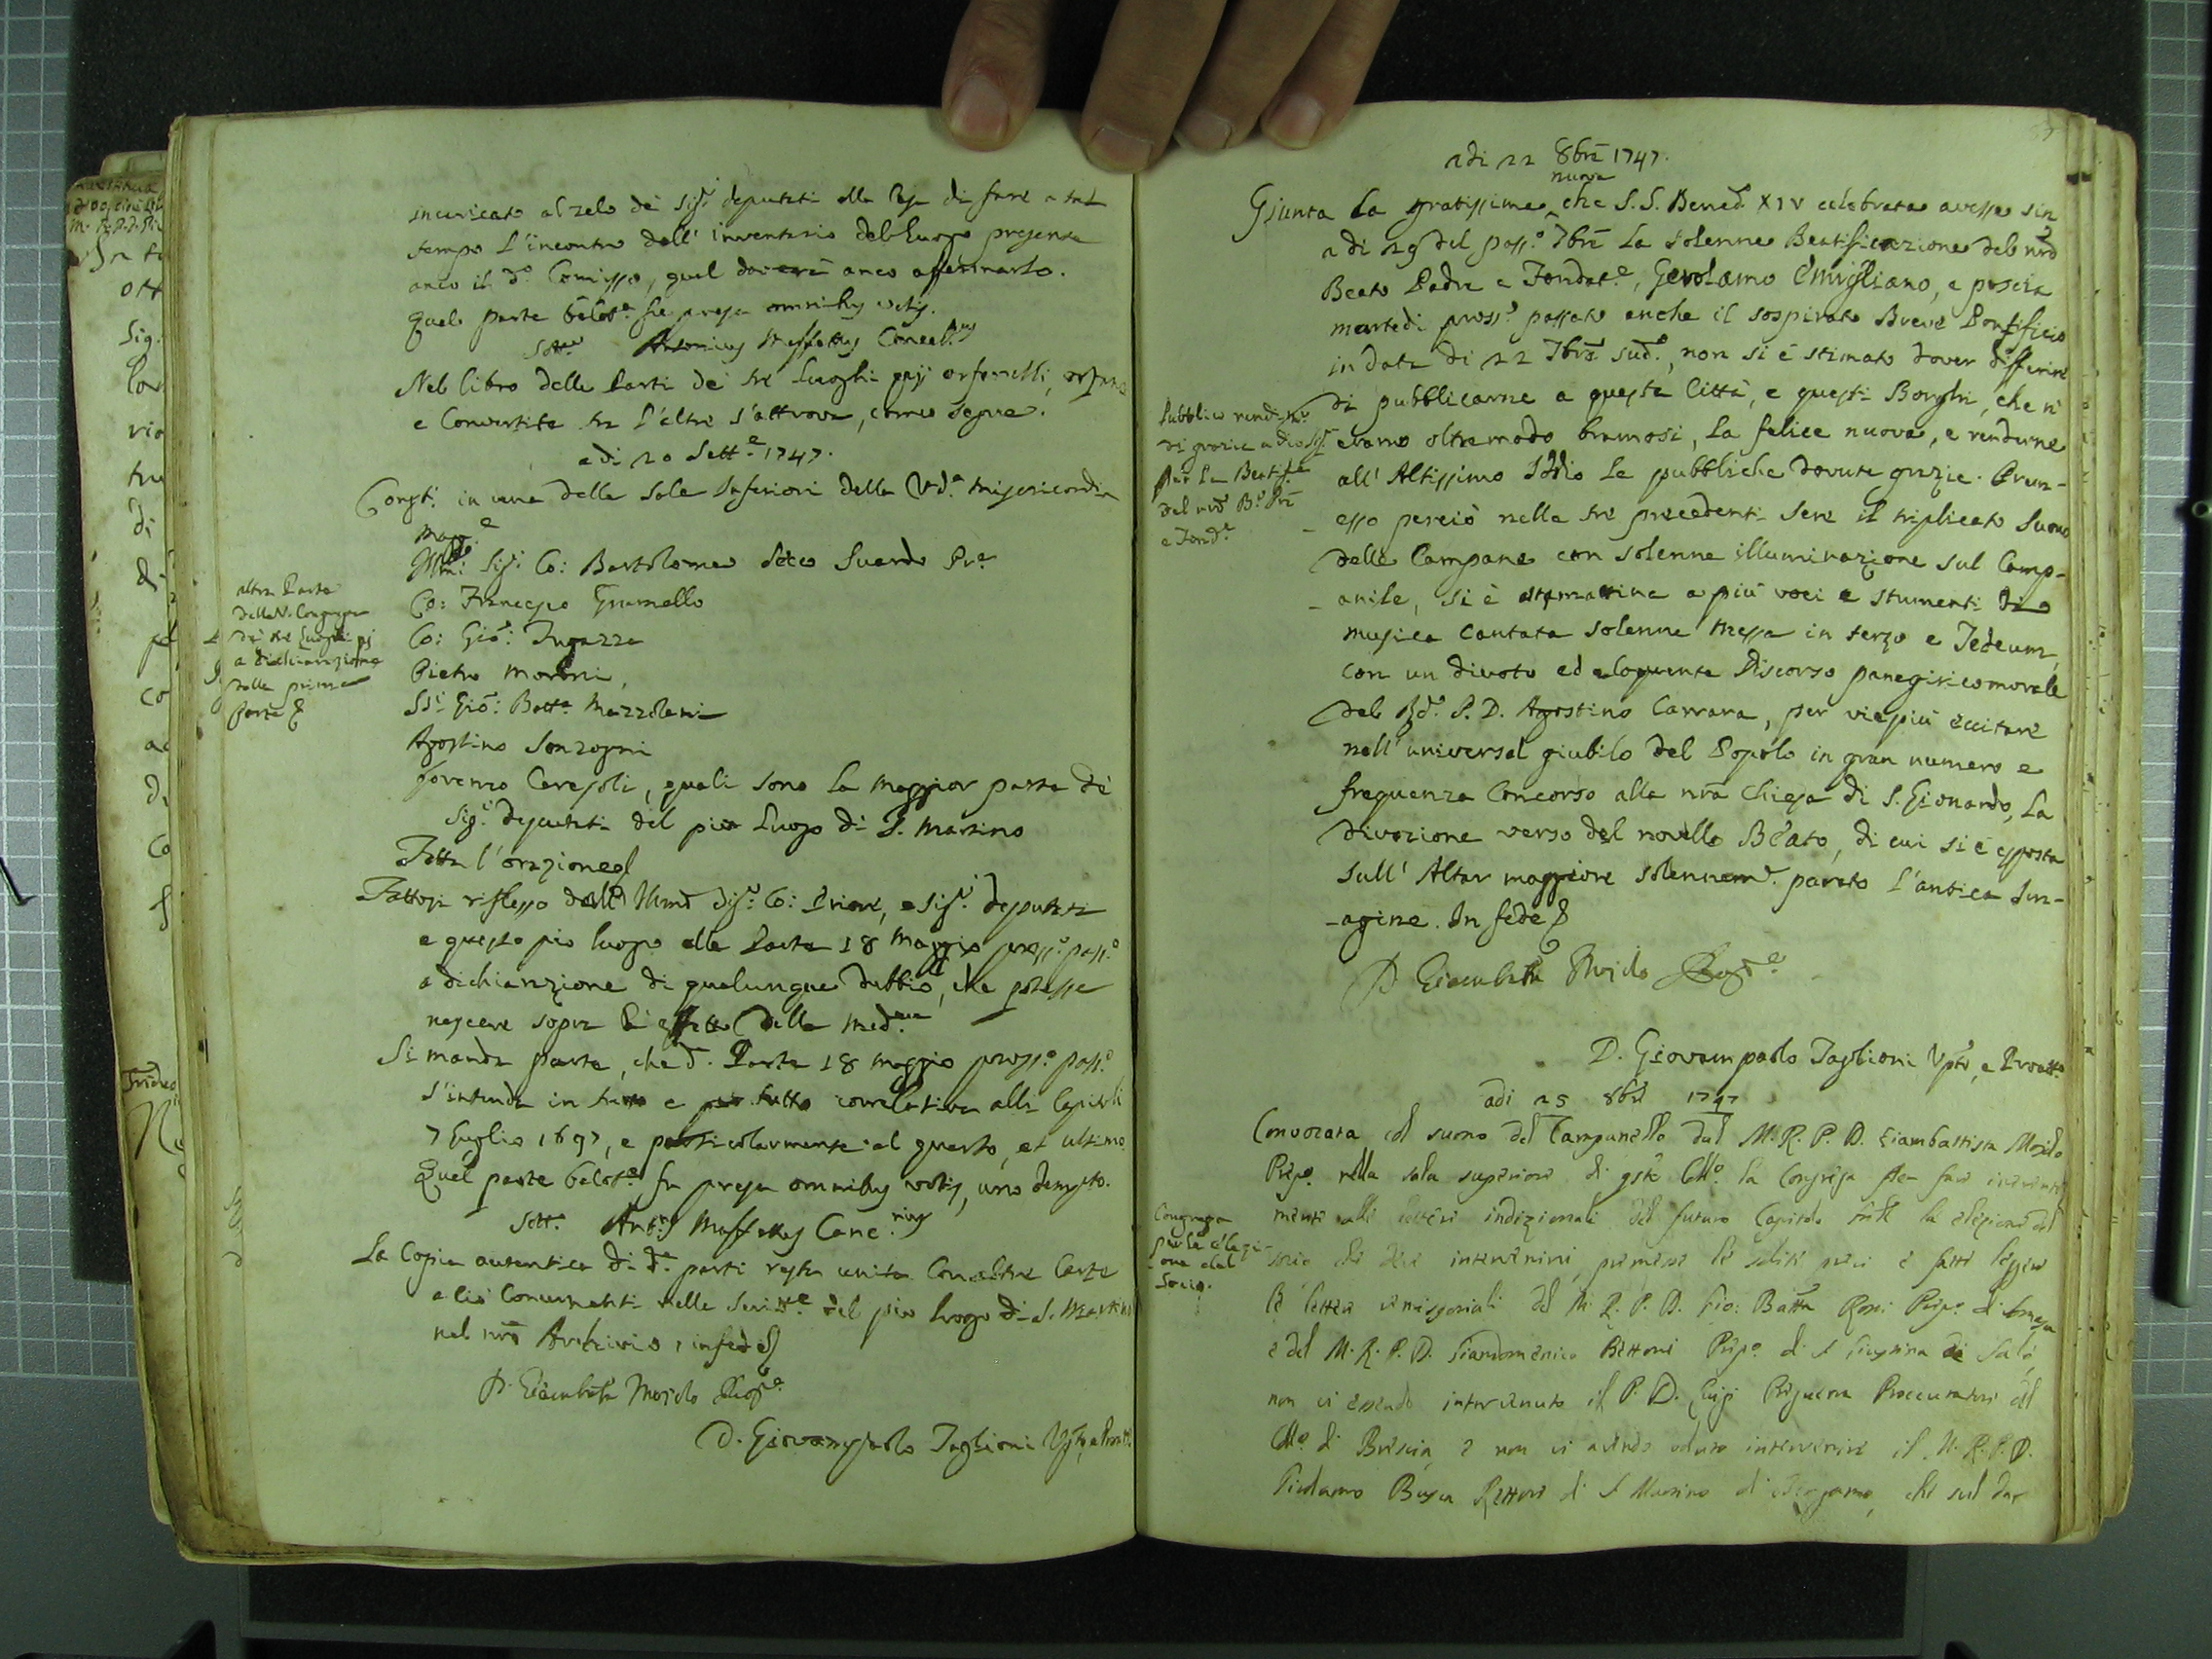 incaricato al zelo dei Sig.i deputati alla Rega di fare a tal
tempo l'incontro dell'inventario del Luogo presente
anco il d.o Comisso, qual doverà anco affermarlo.
Qual parte balot.a fu presa omnibus votis.
Sott.o Antonius Maffettus Cancel.us
Nel libro delle Parti dei tre Luoghi pij orfanelli, orfane
e Convertite tra l'altre s'attrova, come segue.
adi 20 Sett.e 1747.
Congti in una delle Sale Inferiori della Ven.da Misericordia
Magg.e
Illmi Sig.i Co: Bartolomeo Secco Suardo Pr.e
Co: Francesco Grumello
Co: Gio: 
Pietro Moroni,
SSi Gio: Batt.a Mazzoleni
Agostino Sonzogni
Lorenzo Caresoli, quali sono la maggior parte de
Sig.i deputati del pio Luogo di S. Martino
Fatta l'orazione
altra Parte
della V. Congrega
dei tre Luoghi pij
a dichiarazione
della prima
Parte &
Fattosi riflesso dall' Illmo Sig.r Co: Priore, e Sig.i deputati
a questo pio luogo alla Parte 18 Maggio pross.o pass.o
a dichiarazione di qualunque dubbio, che potesse
nascere sopra li effetti della med.ma
Si manda parte, che d.a Parte 18 Maggio pross.o pass.o
s'intenda in tutto e per tutto correlativa alli Capitoli
7 Luglio 1697, e particolarmente al quarto, et ultimo.
Qual parte balot.a fu presa omnibus votis, uno dempto.
Sott.o Ant.us Maffettus Canc.rius
La Copia autentica di d.e parti resta unita con altre Carte
a ciò concernenti nelle Scritt.e del pio luogo di S. Martino
nel nro Archivio, in fede &
D. Giambatta Mojolo Prep.o
D. Giovanpaolo Taglioni Vpto, e Proatt.
adi 22 8bre 1747.
Giunta la gratissima nuova che S.S. Bened.o XIV celebrata avesse sin
adi 29 del pass.o 7bre la solenne Beatificazione del nro
Beato Padre e Fondat.e, Gerolamo Emigliano, e poscia
martedi pross.o passato anche il sospirato Breve Pontificio
in data di 22 7bre sud.o, non si è stimato dover differire
di pubblicarne a questa Città, e questi Borghi, che n'
erano oltremodo bramosi, la felice nuova, e renderne
all'Altissimo Iddio le pubbliche dovute grazie. Prem-
-esso perciò nelle tre precedenti Sere il triplicato Suono
delle Campane con solenne illuminazione sul Camp-
-anile, si è stamattina a più voci e stumenti di
musica cantata solenne Messa in terzo e Tedeum,
con un divoto ed eloquente Discorso panegirico morale
del R.do P. D. Agostino Carrara, per viepiù eccitare
nell'universal giubilo del Popolo in gran numero e
frequenza concorso alla nra Chiesa di S. Lionardo, la
divozione verso del novello Beato, di cui si è esposta
sull'Altar maggiore solennem.e parato l'antica Im-
-agine. In fede &
Pubblico rendim.o
di grazie a Dio Sig.
per la Beatif.e
del nro B.o Pre
e Fond.e
D. Giambatta Mojolo Prep.o
D. Giovanpaolo Taglioni Vpto, e Proatt.
adi 25 8bre 1747
Convocata col suono del Campanello dal M. R. P. D. Giambattista Mojolo
Prep.o nella sala superiore di qsto Coll.o la Congrega per fare
mente alle lettere indizionali del futuro Capitolo Gnle la elezione del
socio che deve intervenirvi, premesse le solite preci e fatte leggere
le lettere del M. R. P. D. Gio: Batta Rossi Prep.o di Somasca
e del M. R. P. D. Giandomenico Bettoni Prep.o di S. Giustina di Salò,
non vi essendo intervenuto il P. D. Luigi Proccuratore del
Coll.o di Brescia, e non vi avendo voluto intervenire il M. R. P. D.
Girolamo Rettore di S. Martino di Bergamo, che sul dar
Congrega
per la elezi-
one del
Socio.